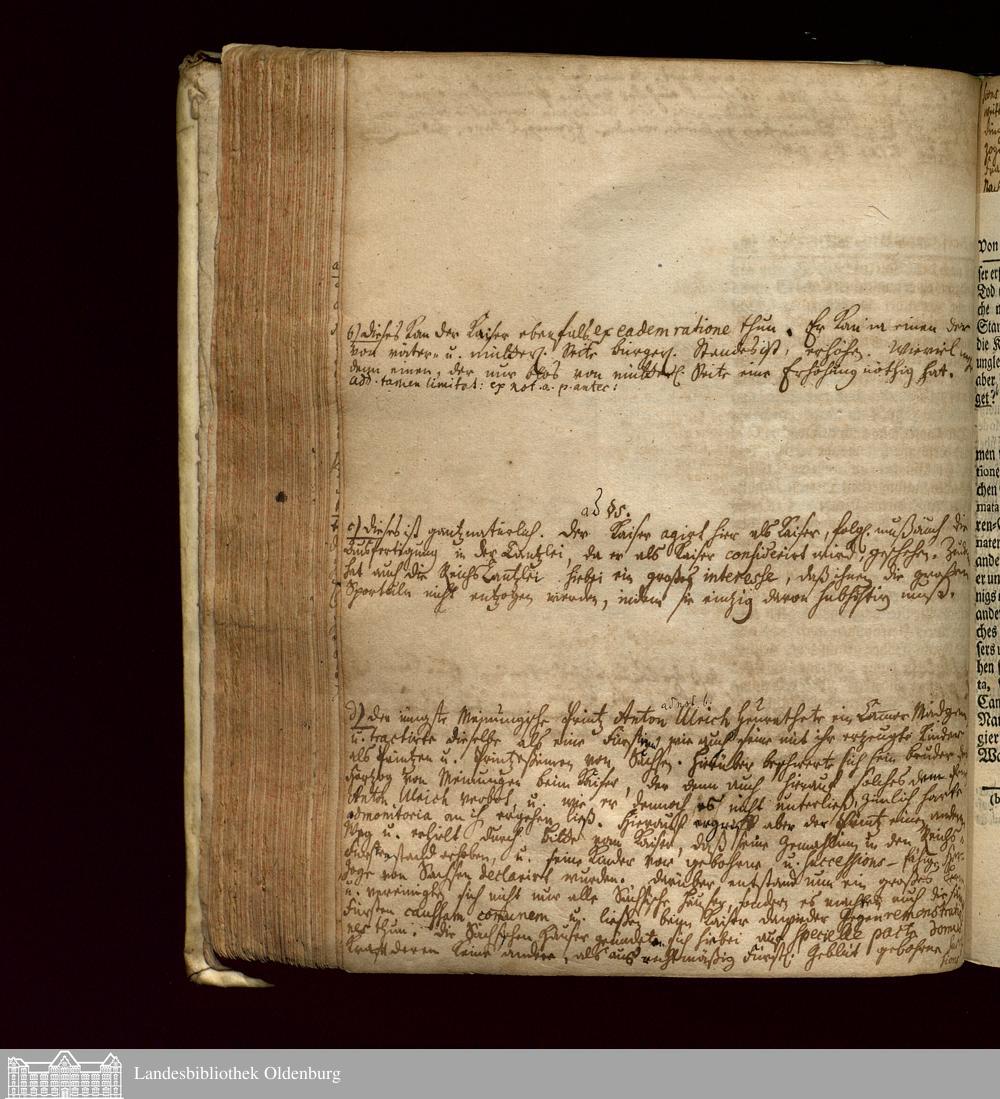 b) Dieses kan der Kaiser ebenfalls ex eadem ratione thun. Er kan ja einen der
von väter- u. mütterl. Seite bürgerl. Standes ist, erhöhen. Wieviel
denn einen, der nur blos von mütterl. Seite eine Erhöhung nöthig hat.
add. tamen limitat: ex not. a. p. antec:
ad §5.
c) Dieses ist gantz natürlich. Der Kaiser agirt hier als Kaiser, folgl. muß auch die
Ausfertigung in der Cantzlei, da er als Kaiser considerirt wird, geschehen.
hat auch die Reichs Cantzlei hiebei ein großes interesse, daß ihnen die großen
Sportuln nicht entzogen werden, indem sie eintzig davon subsistiren muß.
ad not. b.
d) Der jüngste Meinungische Printz Anton Ulrich heurathete ein Cammer Mädgen
u. tractirte dieselbe als eine Fürstin, wie auch seine mit ihr erzeugte Kinder
als Printzen u. Printzessinnen von Sachsen. Hierüber beschwerte sich sein Bruder der
Hertzog von Meinungen beim Kaiser, der denn auch hierauf solches dem
Anton Ulrich verbot, u. wie er dennoch es nicht unterließ, zimlich harte
admonitoria an ihn ergehen ließ. Hierauf ergriff aber der Printz einen andern
Weg u. erhielt durch Bitte vom Kaiser, daß seine Gemahlin in den Reichs
Fürstenstand erhoben, u. seine Kinder vor gebohrne u. successions-fähige
zoge von Sachsen declarirt wurden. Darüber entstand nun ein großes
u. vereinigten sich nicht nur alle Sächsische Häuser, sondern es machten auch die
Fürsten caussam comunem u. ließen beim Kaiser dawieder Gegenremonstrati
ons thun. Die Sächsischen Häuser gründeten sich hiebei auf specielle pacta domus
Kraft deren keine andere, als aus rechtmäßig Fürstl. Geblüt gebohrne
Von
ser er
Tod
che
Stan
die K
ungle
aber
get?
men
tione
chen
mata
ren-
mater
ande
er un
nigs
ande
ches
sers
hen
ta,
Can
Nar
gier
Wa
(b
Landesbibliothek Oldenburg